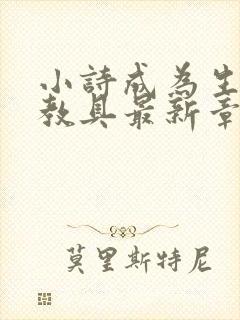 小詩成為生
教具最新章
莫里斯特尼